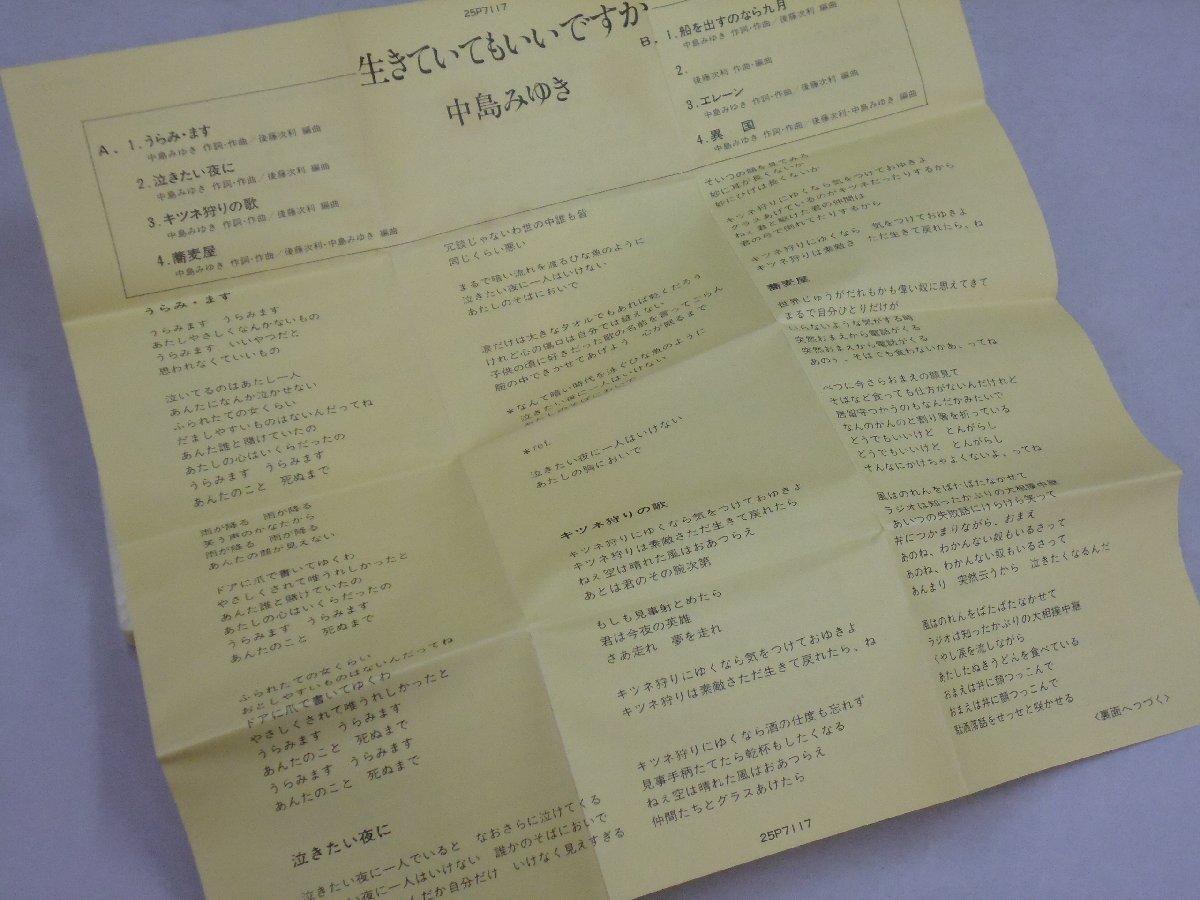 25P7117
生きていてもいいですか
中島みゆき
A. 1. うらみ・ます
中島みゆき 作詞・作曲／後藤次利 編曲
2. 泣きたい夜に
中島みゆき 作詞・作曲／後藤次利 編曲
3. キツネ狩りの歌
中島みゆき 作詞・作曲／後藤次利 編曲
4. 蕎麦屋
中島みゆき 作詞・作曲／後藤次利・中島みゆき 編曲
B. 1. 船を出すのなら九月
中島みゆき 作詞・作曲／後藤次利 編曲
2.
後藤次利 作曲・編曲
3. エレーン
中島みゆき 作詞・作曲／後藤次利 編曲
4. 異 国
中島みゆき 作詞・作曲／後藤次利・中島みゆき 編曲
うらみ・ます
うらみます うらみます
あたしやさしくなんかないもの
うらみます いいやつだと
思われなくていいもの
泣いてるのはあたし一人
あんたになんか泣かせない
ふられたての女くらい
だましやすいものはないんだってね
あんた誰と賭けていたの
あたしの心はいくらだったの
うらみます うらみます
あんたのこと 死ぬまで
雨が降る 雨が降る
笑う声のかなたから
雨が降る 雨が降る
あんたの顔が見えない
ドアに爪で書いてゆくわ
やさしくされて唯うれしかったと
あんた誰と賭けていたの
あたしの心はいくらだったの
うらみます うらみます
あんたのこと 死ぬまで
ふられたての女くらい
おとしやすいものはないんだってね
ドアに爪で書いてゆくわ
やさしくされて唯うれしかったと
うらみます うらみます
あんたのこと 死ぬまで
うらみます うらみます
あんたのこと 死ぬまで
泣きたい夜に
泣きたい夜に一人でいると なおさらに泣けてくる
夜に一人はいけない 誰かのそばにおいで
だか自分だけ いけなく見えすぎる
冗談じゃないわ世の中誰も皆
同じくらい悪い
まるで暗い流れを渡るひな魚のように
泣きたい夜に一人はいけない
あたしのそばにおいで
涙だけは大きなタオルでもあれば乾くだろう
けれど心の傷口は自分では縫えない
子供の頃に好きだった歌の名前を言ってごらん
腕の中できかせてあげよう 心が眠るまで
*なんて暗い時代を泳ぐひな魚のように
泣きたい夜に一人はいけない
あたしのそばにおいで
*ref.
泣きたい夜に一人はいけない
あたしの胸においで
キツネ狩りの歌
キツネ狩りにゆくなら気をつけておゆきよ
キツネ狩りは素敵さただ生きて戻れたら
ねぇ空は晴れた風はおあつらえ
あとは君のその腕次第
もしも見事射とめたら
君は今夜の英雄
さあ走れ 夢を走れ
キツネ狩りにゆくなら気をつけておゆきよ
キツネ狩りは素敵さただ生きて戻れたら、ね
キツネ狩りにゆくなら酒の仕度も忘れず
見事手柄たてたら乾杯もしたくなる
ねぇ空は晴れた風はおあつらえ
仲間たちとグラスあけたら
25P7117
そいつの顔を見てみろ
妙に耳が長くないか
妙にひげは長くないか
キツネ狩りにゆくなら気をつけておゆきよ
グラスあげているのがキツネだったりするから
ねぇ君と駆けた君の仲間は
君の弓で倒れてたりするから
キツネ狩りにゆくなら 気をつけておゆきよ
キツネ狩りは素敵さ ただ生きて戻れたら、ね
蕎麦屋
世界じゅうがだれもかも偉い奴に思えてきて
まるで自分ひとりだけが
いらないような気がする時
突然おまえから電話がくる
突然おまえから電話がくる
あのぅ、そばでも食わないかあ、ってね
べつに今さらおまえの顔見て
そばなど食っても仕方がないんだけれど
居留守つかうのもなんだかみたいで
なんのかんのと割り箸を折っている
どうでもいいけど とんがらし
どうでもいいけど とんがらし
そんなにかけちゃよくないよ、ってね
風はのれんをばたばたなかせて
ラジオは知ったかぶりの大相撲中継
あいつの失敗話にけらけら笑って
丼につかまりながら、おまえ
あのね、わかんない奴もいるさって
あのね、わかんない奴もいるさって
あんまり 突然云うから 泣きたくなるんだ
風はのれんをばたばたなかせて
ラジオは知ったかぶりの大相撲中継
くやし涙を流しながら
あたしたぬきうどんを食べている
おまえは丼に顔つっこんで
おまえは丼に顔つっこんで
駄洒落話をせっせと咲かせる
〈裏面へつづく〉